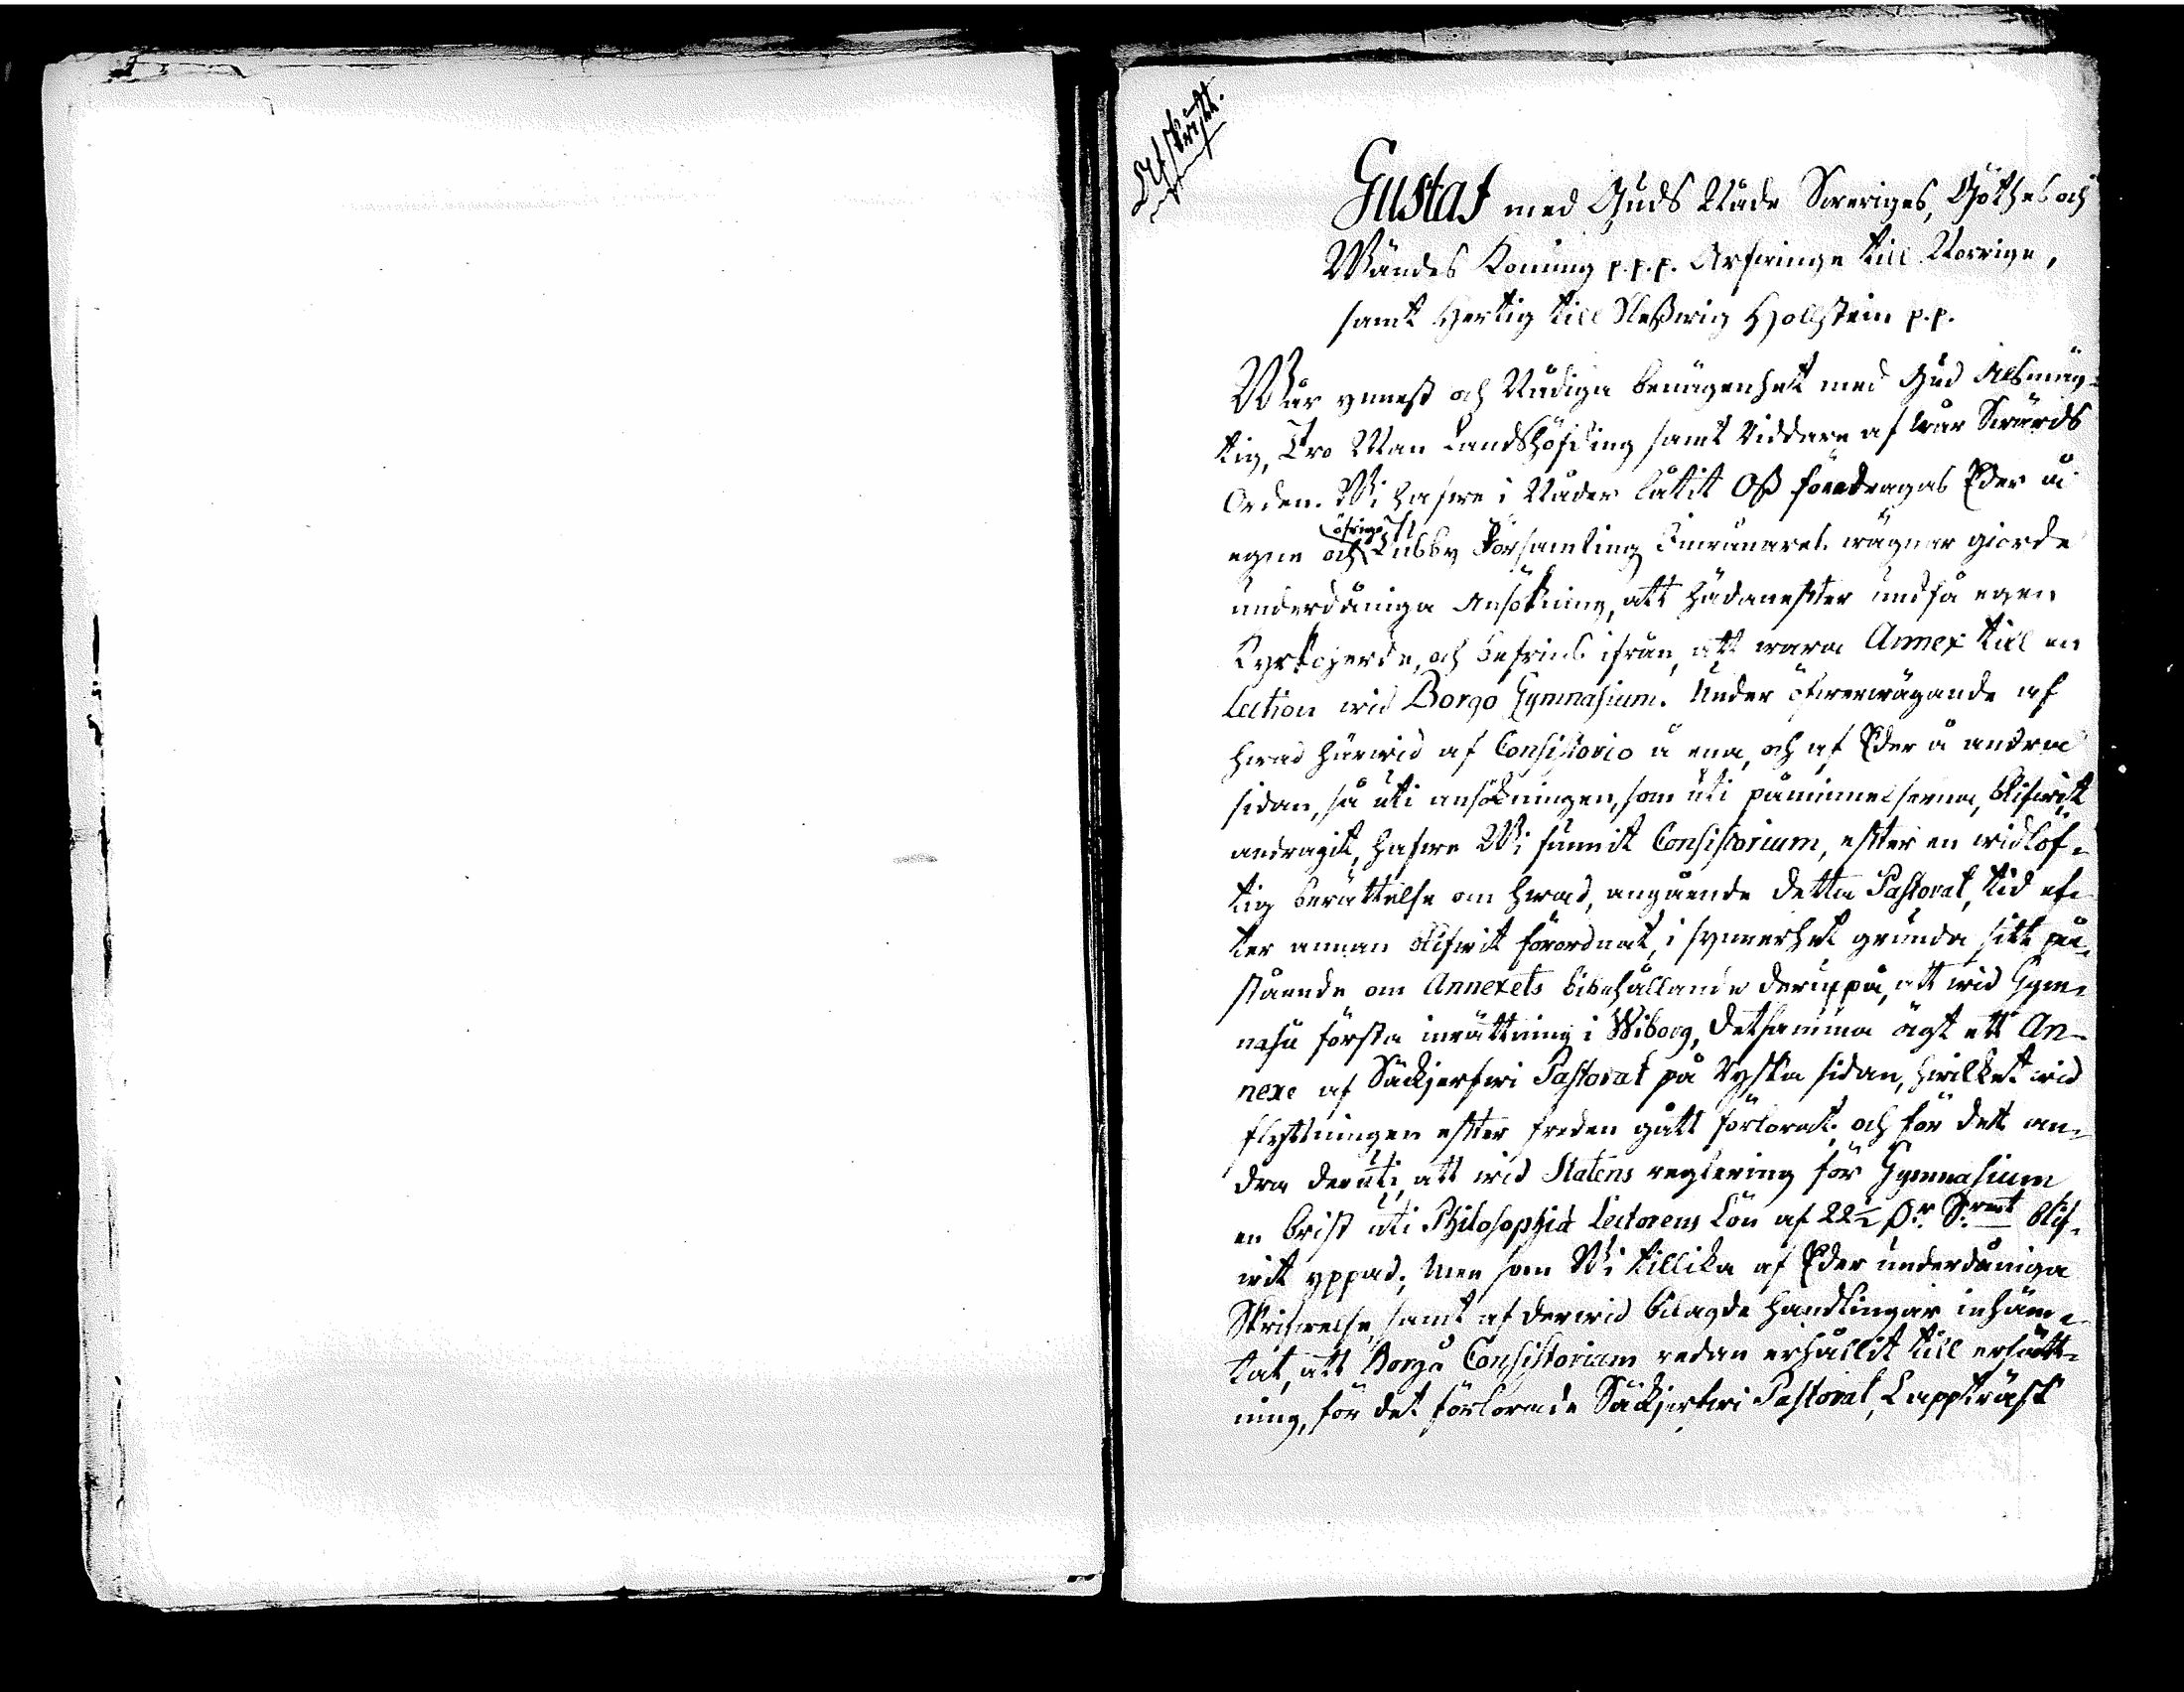 Afskrift.
Gustaf med Guds Nåde Sweriges, Göthes och
Wändes Konung p.p.p. Arfwinge till Norrige,
samt Hertig till Sleßwig Hollstein p.p.
Wår ynnest och Nådiga benägenhet med Gud Alsmäg-
tig, Tro Man Landshöfding samt Riddare af wår Swärds
Orden. Wi hafwe i Nåder låtit Oß föredragas Eder å
öfrige
egne och Lubby Församling Inwånares wägnar giorde
underdåniga Ansökning, att hädanefter undfå egen
Kyrkoherde, och befrias ifrån, att wara Annex till en
Lection wid Borgo Gymnasium. Under öfwerwägande af
hwad härwid af Consistorio å ena, och af Eder å andra
sidan, så uti ansökningen, som uti påminnelserna, blifwit
andragit, hafwe Wi funnit Consistorium, efter en widlöf-
tig berättelse om hwad, angående detta Pastorat, tid ef-
ter annan blifwit förordnat, i synnerhet grunda sitt på-
stående om Annexets bibehållande deruppå, att wid Gym-
nasii första inrättning i Wiborg, detsamma ägt ett An-
nexe af Säckjerfwi Pastorat på Ryska sidan, hwilket wid
flyttningen efter freden gått förlorat; och för det an-
dra deruti, att wid Statens reglering för Gymnasium
en brist uti Philosophiæ Lectorens Lön af 22½ Dr. S:rmt blif-
wit yppad; Men som Wi tillika af Eder underdåniga
Skrifwelse, samt af derwid bilagde handlingar inhäm-
tat, att Borgå Consistorium redan erhållit till ersätt-
ning, för det förlorade Säckjerfwi Pastorat, Lappträsk